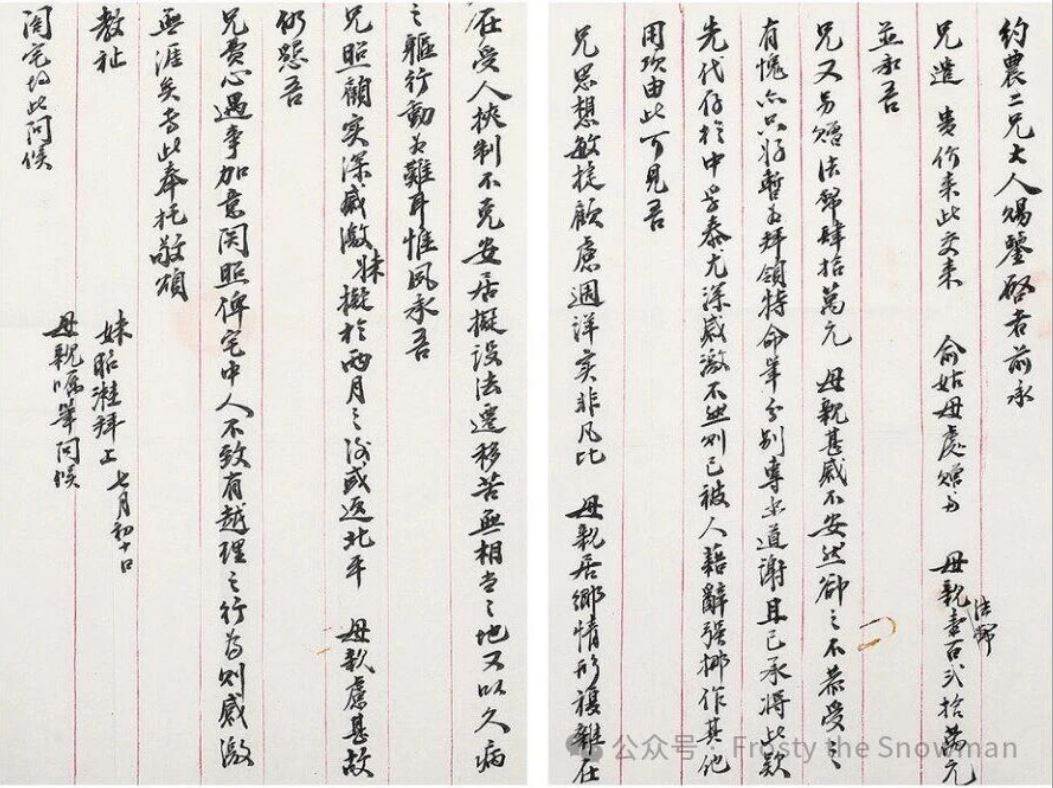 約農二兄大人賜鑒啓者前承
兄遣 貴价来此交来 俞姑母處贈与 母親法幣壹百弍拾萬元
並承吾
兄又另贈法幣肆拾萬元 母親甚感不安然卻之不恭受之
有愧亦只好暫为拜領特命筆分别專函道謝且已承將此款
先代存於中孚泰尤深感激不然则已被人藉辭强挪作其他
用欵由此可見吾
兄思想敏捷顧慮週详实非凡比 母親居鄉情形複雜在
在受人挾制不克安居擬设法遷移苦無相当之地又以久病
之軀行動为難耳惟夙承吾
兄照顧实深感激妹擬於两月之後或返北平 母親慮甚故
仍懇吾
兄費心遇事加意関照俾宅中人不致有越理之行為则感激
無涯矣专此奉托敬頌
教祉
妹昭 拜上 七月初十日
母親嘱筆问候
閤宅均此问候
公众号 · Frosty the Snowman